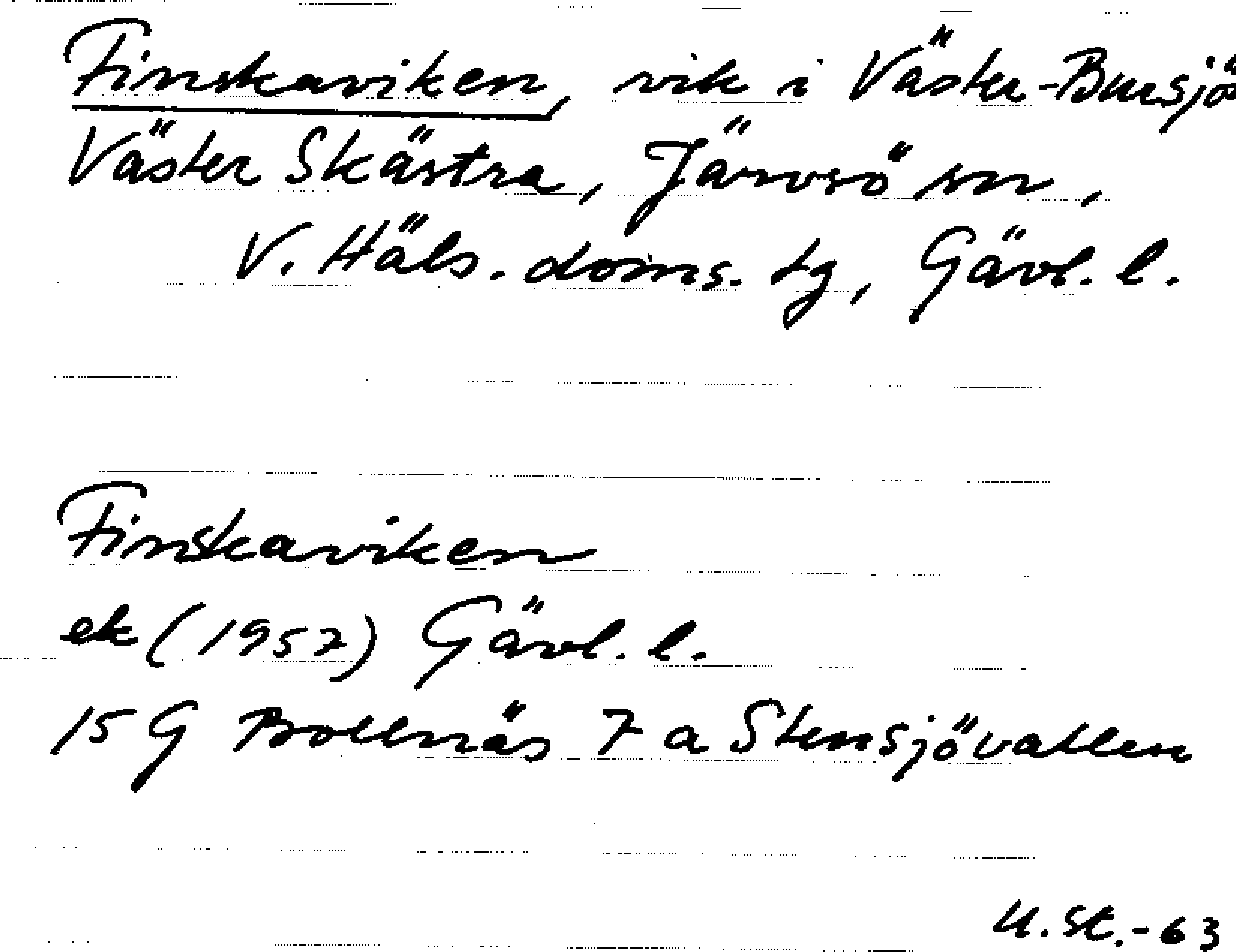 Finskaviken, vik i Väster-Bursjö
Väster Skästra, Järvsö sn,
V. Häls. doms. tg, Gävl. l.
Finskaviken
ek (1957) Gävl. l.
15 G Bollnäs 7 a Stensjövallen
U.St.-63